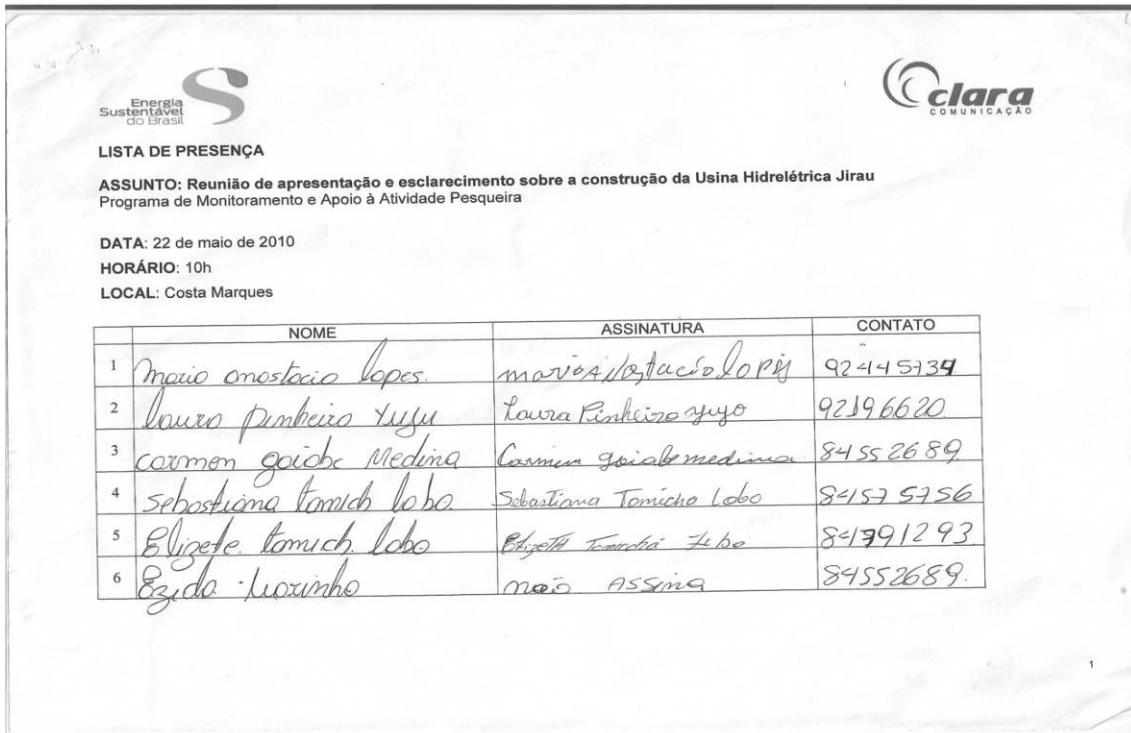 Energia
Sustentável
do Brasil
clara
COMUNICAÇÃO
LISTA DE PRESENÇA
ASSUNTO: Reunião de apresentação e esclarecimento sobre a construção da Usina Hidrelétrica Jirau
Programa de Monitoramento e Apoio à Atividade Pesqueira
DATA: 22 de maio de 2010
HORÁRIO: 10h
LOCAL: Costa Marques
NOME ASSINATURA CONTATO
1 Mario anostacio lopes. 92445734
2 Laura Pinheiro Yuju Laura Pinheiro yuyo 92196620
3 Carmen goiabe Medina Carmen goiabe medina 84552689
4 Sebastiana tomich lobo. Sebastiana Tomicha Lobo 84575756
5 Elizete tomich lobo Tomichá Lobo 84791293
6 não Assina 84552689.
1